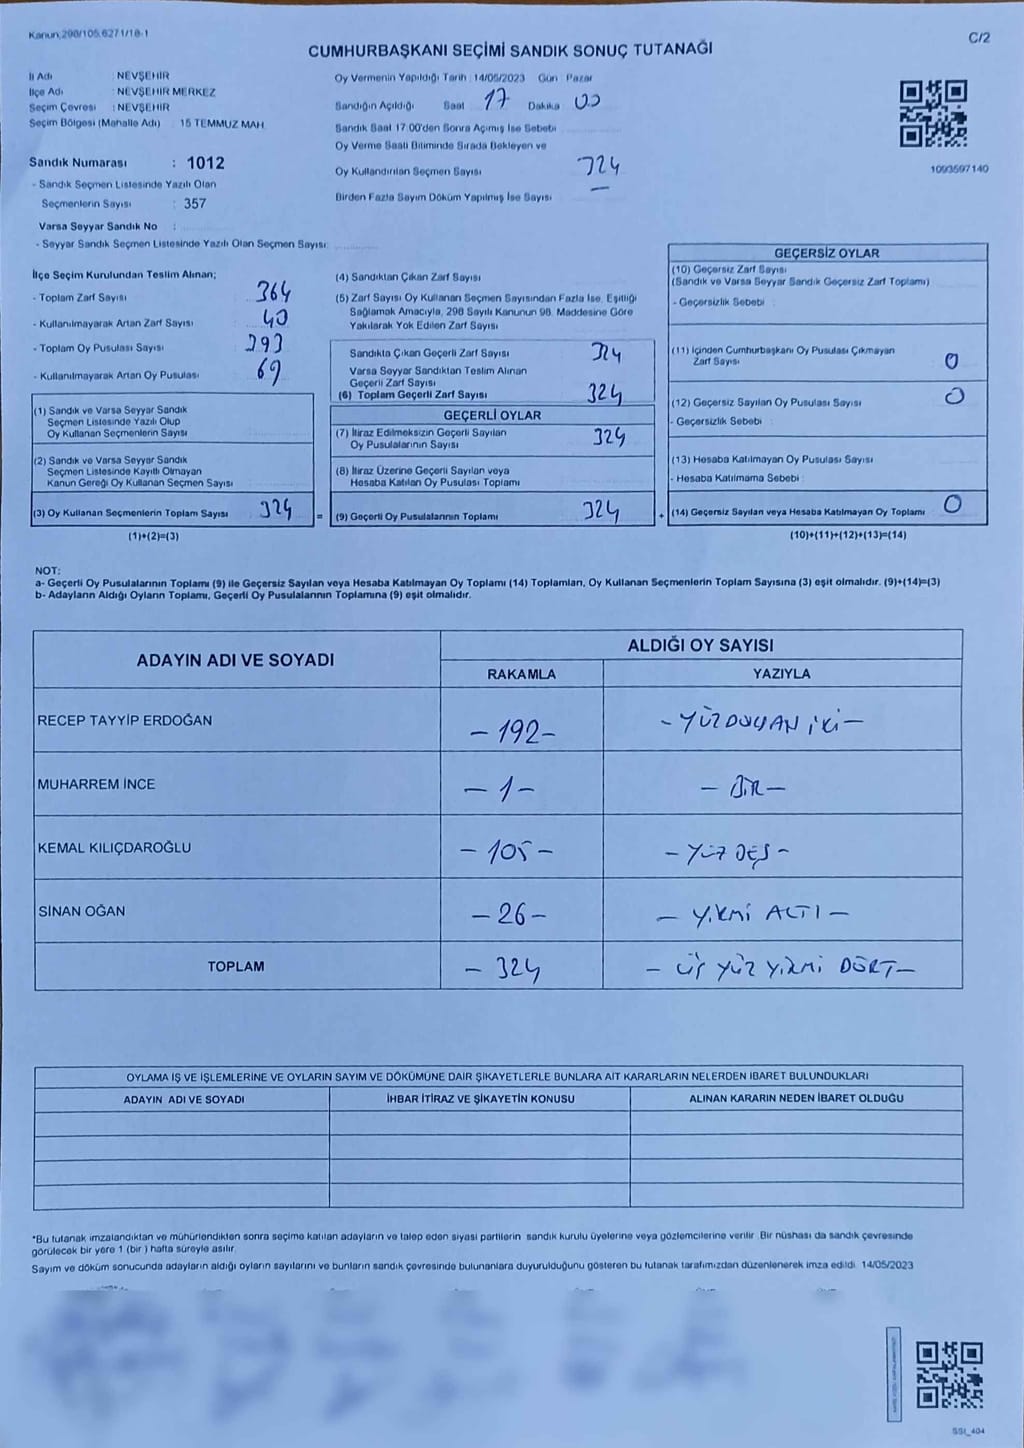 Kanun,298/105,6271/18-1
C/2
CUMHURBAŞKANI SEÇİMİ SANDIK SONUÇ TUTANAĞI
İl Adı : NEVŞEHİR
İlçe Adı : NEVŞEHİR MERKEZ
Seçim Çevresi : NEVŞEHİR
Seçim Bölgesi (Mahalle Adı) : 15 TEMMUZ MAH.
Sandık Numarası : 1012
- Sandık Seçmen Listesinde Yazılı Olan
Seçmenlerin Sayısı : 357
Varsa Seyyar Sandık No :
- Seyyar Sandık Seçmen Listesinde Yazılı Olan Seçmen Sayısı:
Oy Vermenin Yapıldığı Tarih : 14/05/2023 Gün : Pazar
Sandığın Açıldığı Saat 17 Dakika 00
Sandık Saat 17.00'den Sonra Açımış İse Sebebi
Oy Verme Saati Bitiminde Sırada Bekleyen ve
Oy Kullandırılan Seçmen Sayısı 324
Birden Fazla Sayım Döküm Yapılmış İse Sayısı —
1093597140
İlçe Seçim Kurulundan Teslim Alınan;
- Toplam Zarf Sayısı 364
- Kullanılmayarak Artan Zarf Sayısı 40
- Toplam Oy Pusulası Sayısı 393
- Kullanılmayarak Artan Oy Pusulası 69
(1) Sandık ve Varsa Seyyar Sandık
Seçmen Listesinde Yazılı Olup
Oy Kullanan Seçmenlerin Sayısı
(2) Sandık ve Varsa Seyyar Sandık
Seçmen Listesinde Kayıtlı Olmayan
Kanun Gereği Oy Kullanan Seçmen Sayısı
(3) Oy Kullanan Seçmenlerin Toplam Sayısı 324 =
(1)+(2)=(3)
(4) Sandıktan Çıkan Zarf Sayısı
(5) Zarf Sayısı Oy Kullanan Seçmen Sayısından Fazla İse, Eşitliği
Sağlamak Amacıyla, 298 Sayılı Kanunun 98. Maddesine Göre
Yakılarak Yok Edilen Zarf Sayısı
Sandıkta Çıkan Geçerli Zarf Sayısı 324
Varsa Seyyar Sandıktan Teslim Alınan
Geçerli Zarf Sayısı
(6) Toplam Geçerli Zarf Sayısı 324
GEÇERLİ OYLAR
(7) İtiraz Edilmeksizin Geçerli Sayılan
Oy Pusulalarının Sayısı 324
(8) İtiraz Üzerine Geçerli Sayılan veya
Hesaba Katılan Oy Pusulası Toplamı
(9) Geçerli Oy Pusulalarının Toplamı 324 +
GEÇERSİZ OYLAR
(10) Geçersiz Zarf Sayısı
(Sandık ve Varsa Seyyar Sandık Geçersiz Zarf Toplamı)
- Geçersizlik Sebebi :
(11) İçinden Cumhurbaşkanı Oy Pusulası Çıkmayan
Zarf Sayısı 0
(12) Geçersiz Sayılan Oy Pusulası Sayısı 0
- Geçersizlik Sebebi :
(13) Hesaba Katılmayan Oy Pusulası Sayısı
- Hesaba Katılmama Sebebi :
(14) Geçersiz Sayılan veya Hesaba Katılmayan Oy Toplamı 0
(10)+(11)+(12)+(13)=(14)
NOT:
a- Geçerli Oy Pusulalarının Toplamı (9) ile Geçersiz Sayılan veya Hesaba Katılmayan Oy Toplamı (14) Toplamları, Oy Kullanan Seçmenlerin Toplam Sayısına (3) eşit olmalıdır. (9)+(14)=(3)
b- Adayların Aldığı Oyların Toplamı, Geçerli Oy Pusulalarının Toplamına (9) eşit olmalıdır.
ADAYIN ADI VE SOYADI
ALDIĞI OY SAYISI
RAKAMLA YAZIYLA
RECEP TAYYİP ERDOĞAN -192- -YÜZDOKSAN İKİ-
MUHARREM İNCE -1- -BİR-
KEMAL KILIÇDAROĞLU -105- -YÜZ BEŞ-
SİNAN OĞAN -26- -YİRMİ ALTI-
TOPLAM -324 -ÜÇ YÜZ YİRMİ DÖRT-
OYLAMA İŞ VE İŞLEMLERİNE VE OYLARIN SAYIM VE DÖKÜMÜNE DAİR ŞİKAYETLERLE BUNLARA AİT KARARLARIN NELERDEN İBARET BULUNDUKLARI
ADAYIN ADI VE SOYADI İHBAR İTİRAZ VE ŞİKAYETİN KONUSU ALINAN KARARIN NEDEN İBARET OLDUĞU
*Bu tutanak imzalandıktan ve mühürlendikten sonra seçime katılan adayların ve talep eden siyasi partilerin sandık kurulu üyelerine veya gözlemcilerine verilir. Bir nüshası da sandık çevresinde
görülecek bir yere 1 (bir ) hafta süreyle asılır.
Sayım ve döküm sonucunda adayların aldığı oyların sayılarını ve bunların sandık çevresinde bulunanlara duyurulduğunu gösteren bu tutanak tarafımızdan düzenlenerek imza edildi. 14/05/2023
SSI_404